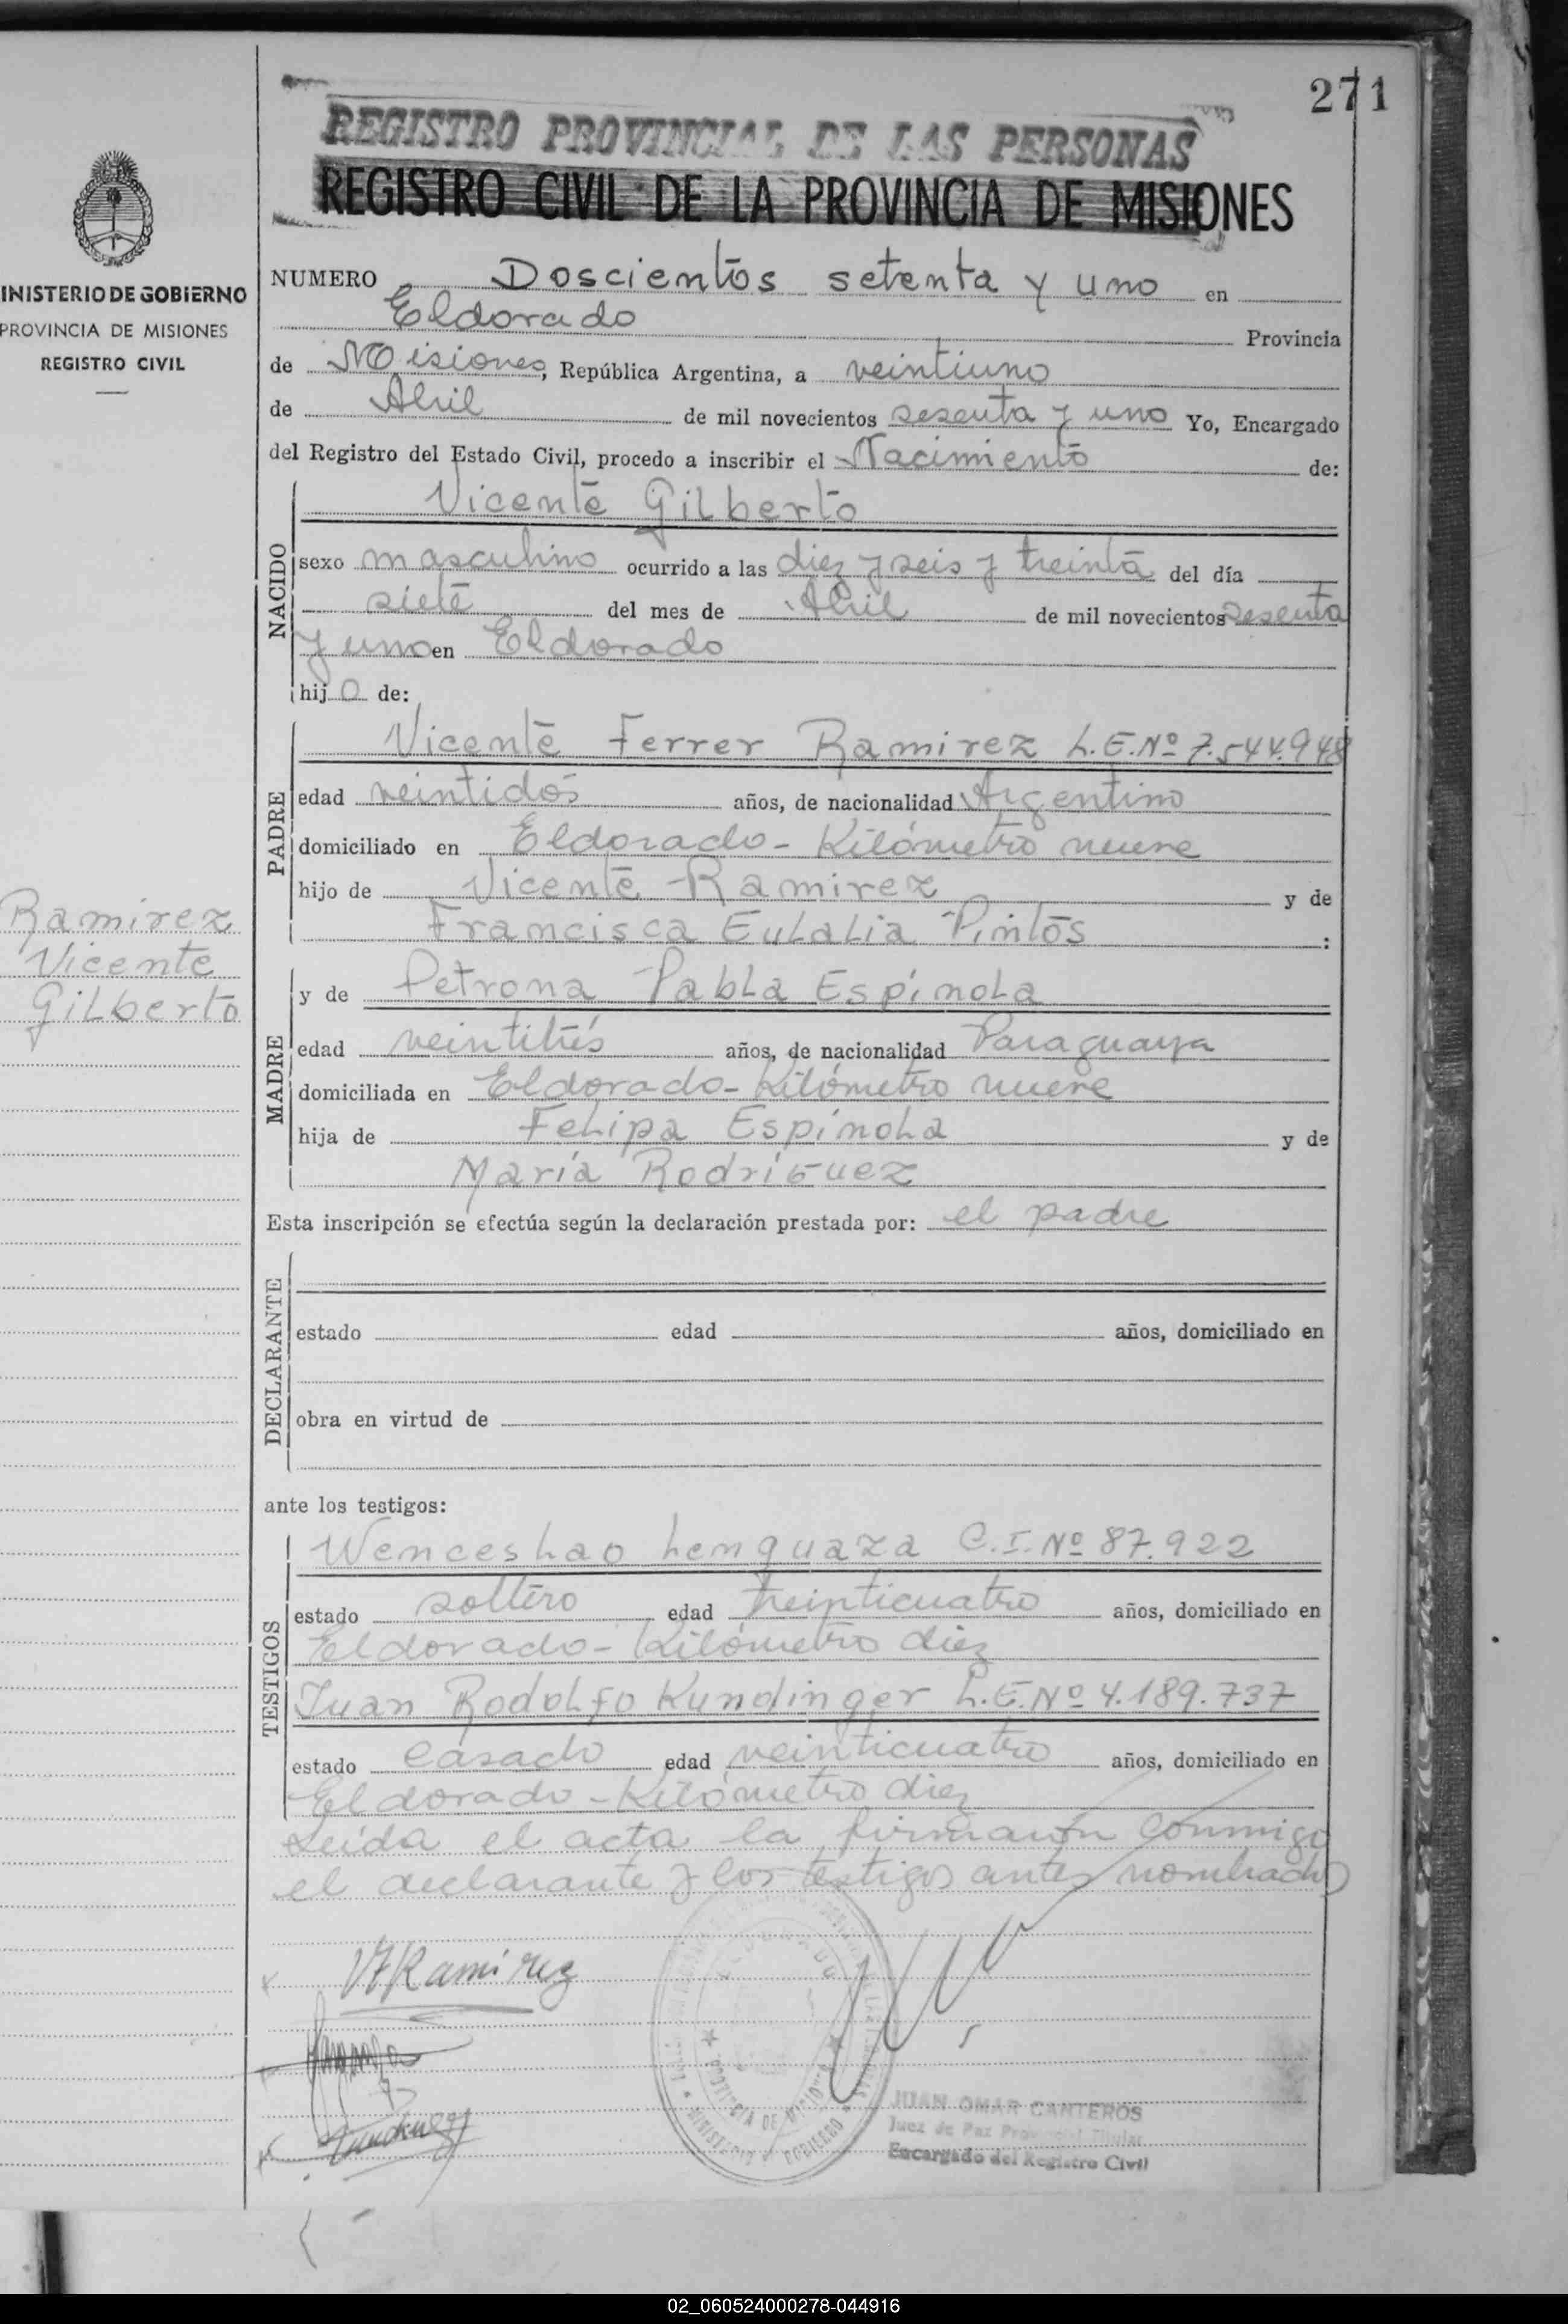 271
REGISTRO PROVINCIAL DE LAS PERSONAS
REGISTRO CIVIL DE LA PROVINCIA DE MISIONES
INISTERIO DE GOBIERNO
PROVINCIA DE MISIONES
REGISTRO CIVIL
NUMERO Doscientos setenta y uno en
Eldorado Provincia
de Misiones, República Argentina, a veintiuno
de Abril de mil novecientos sesenta y uno Yo, Encargado
del Registro del Estado Civil, procedo a inscribir el Nacimiento de:
NACIDO
Vicente Gilberto
sexo masculino ocurrido a las diez y seis y treinta del día
siete del mes de Abril de mil novecientos sesenta
y uno en Eldorado
hijo de:
PADRE
Vicente Ferrer Ramirez L.E.Nº 7.544.948
edad veintidós años, de nacionalidad Argentino
domiciliado en Eldorado - Kilómetro nueve
hijo de Vicente Ramirez y de
Francisca Eulalia Pintos :
Ramirez
Vicente
Gilberto
MADRE
y de Petrona Pabla Espínola
edad veintitrés años, de nacionalidad Paraguaya
domiciliada en Eldorado - Kilómetro nueve
hija de Felipa Espínola y de
María Rodríguez
Esta inscripción se efectúa según la declaración prestada por: el padre
DECLARANTE
estado edad años, domiciliado en
obra en virtud de
ante los testigos:
TESTIGOS
Wenceslao Lenguaza C.I.Nº 87.922
estado soltero edad treinticuatro años, domiciliado en
Eldorado - Kilómetro diez
Juan Rodolfo Kundinger L.E.Nº 4.189.737
estado casado edad veinticuatro años, domiciliado en
Eldorado - Kilómetro diez
Leída el acta la firmaron conmigo
el declarante y los testigos antes nombrados
VFRamirez
PROVINCIA DE MISIONES
MINISTERIO GOBIERNO
JUAN OMAR CANTEROS
Juez de Paz Provincial Titular
Encargado del Registro Civil
02_060524000278-044916